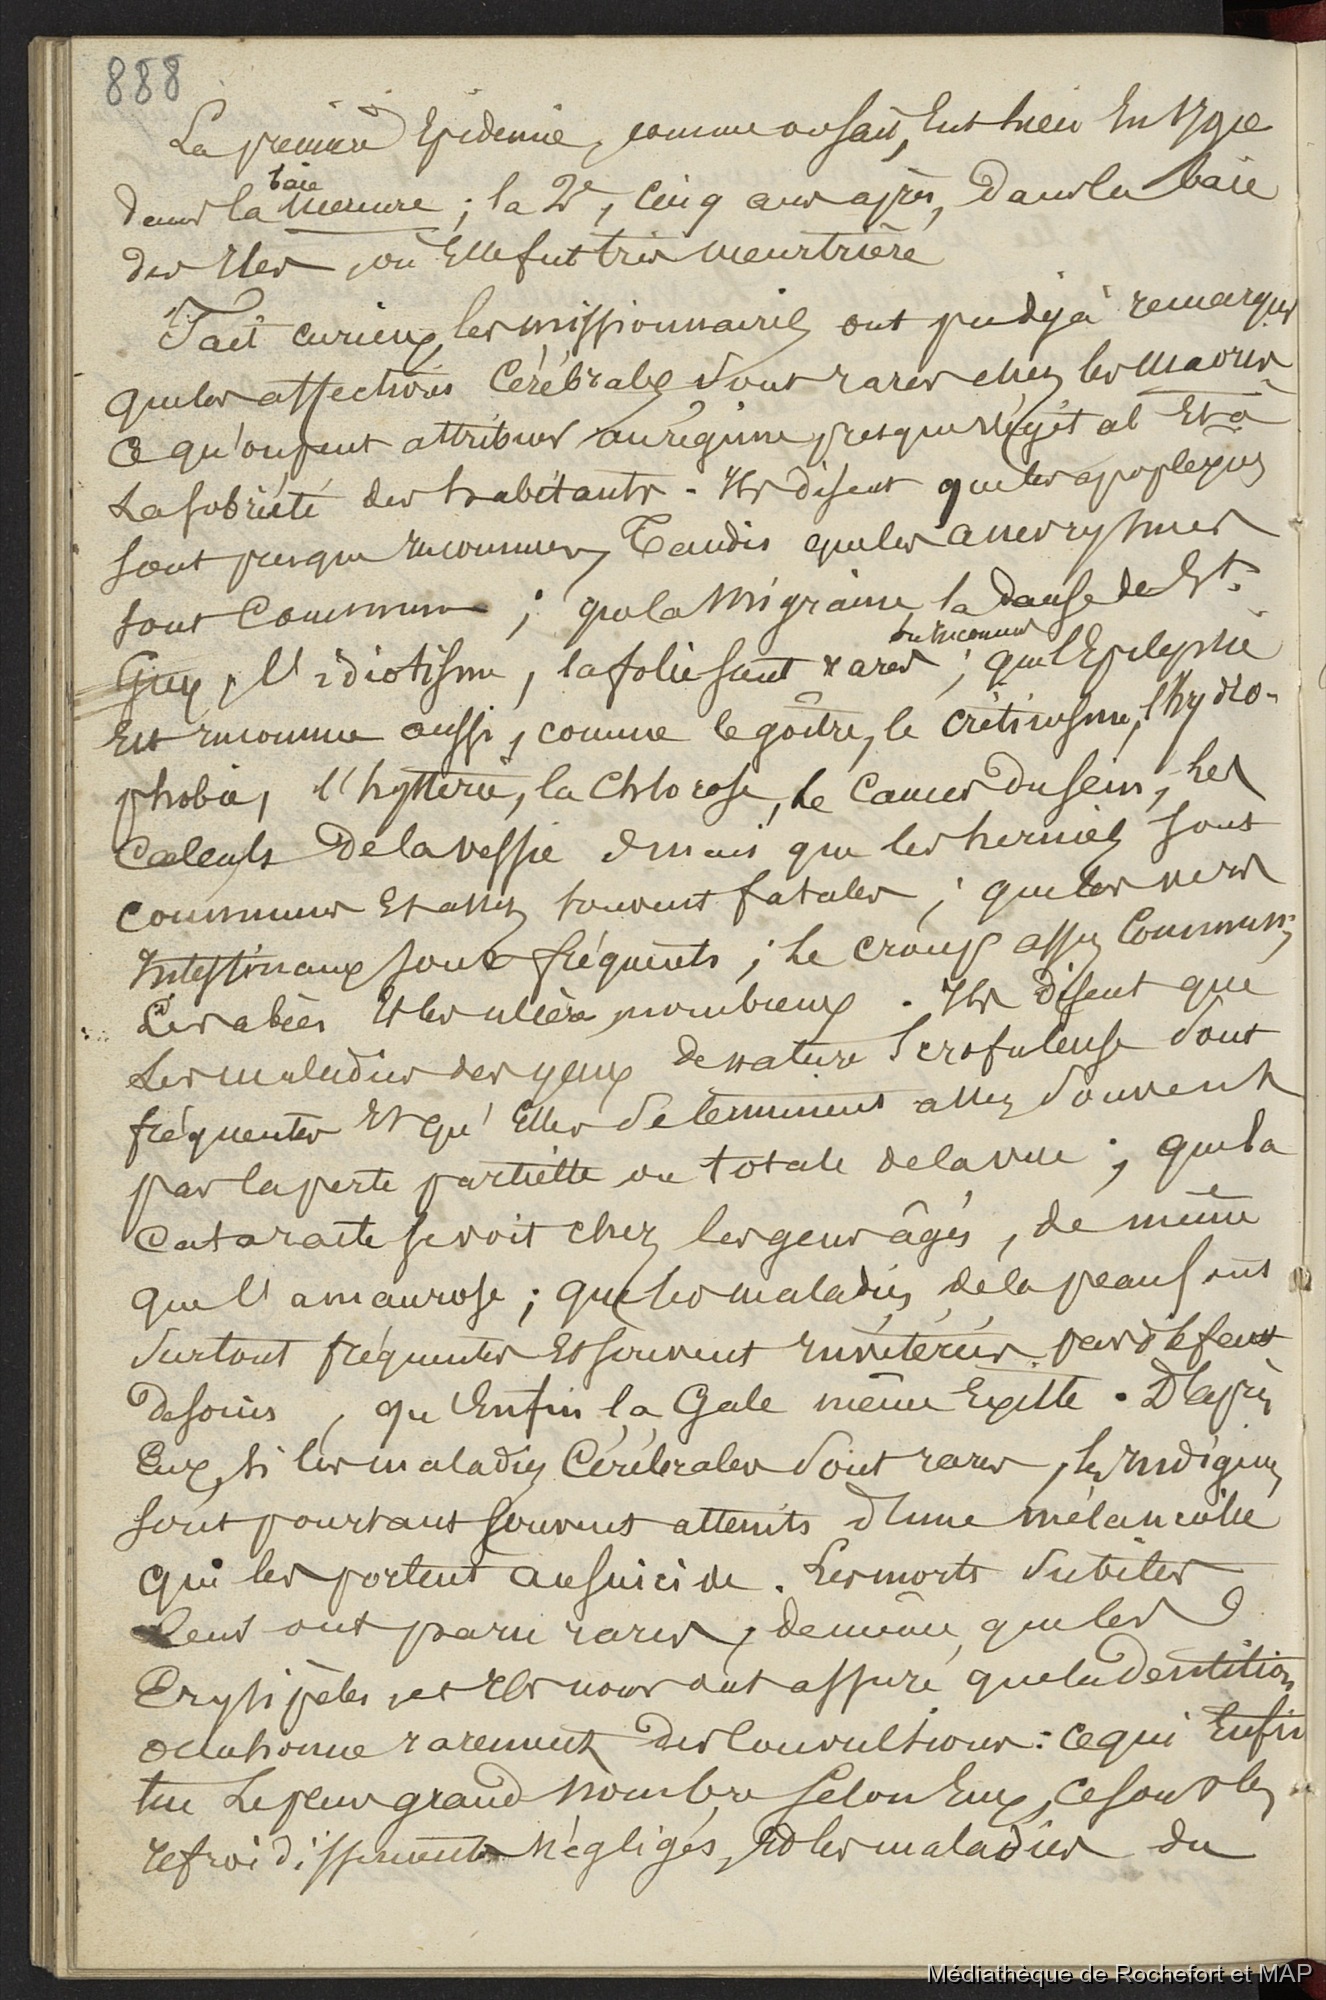 888
La première Epidemie, comme on sait, Eut lieu En 1790
dans la baie Mercure ; la 2e, Cinq ans après, dans la baie
des Iles, où Elle fut très meurtrière
Fait curieux, les missionnaires ont pu déjà remarquer
que les affections Cérébrales sont rares chez les Maoris
Ce qu'on peut attribuer au régime presque végétal Et à
La sobriété des habitants. Ils disent que les apoplexies
sont presque inconnues, Tandis que les anevrysmes
sont Communs ; que la Migraine, la Danse de St.
Guy, l'idiotisme, la folie sont rares ou inconnus ; que l'Epilepsie
Est inconnue aussi, comme le goître, le crétinisme, l'hydro-
phobie, l'hystérie, la Chlorose, le Cancer du sein, les
Calculs de la vessie &mais que les hernies sont
communes Et assez souvent fatales ; que les vers
Intestinaux sont fréquents ; le croup assez Commun ;
Les abcès Et les ulcères, nombreux. Ils disent que
Les maladies des yeux de nature Scrofuleuse sont
fréquentes Et qu'Elles se terminent assez souvent
par la perte partielle ou totale de la vue ; que la
Cataracte se voit chez les gens âgés, de même
que l'amaurose ; que les maladies de la peau sont
surtout fréquentes Et souvent invétérées par défaut
de soins, qu'Enfin la Gale même Existe. D'après
Eux, si les maladies Cérébrales sont rares, les Indigènes
sont pourtant souvent atteints d'une mélancolie
qui les portent au suicide. Les morts subites
Leur ont paru rares, de même que les
Erysipèles, et Ils nous ont assuré que la dentition
occasionne rarement des Convulsions : ce qui Enfin
tue Le plus grand Nombre selon Eux, ce sont les
refroidissements négligés, Et les maladies du
Médiathèque de Rochefort et MAP